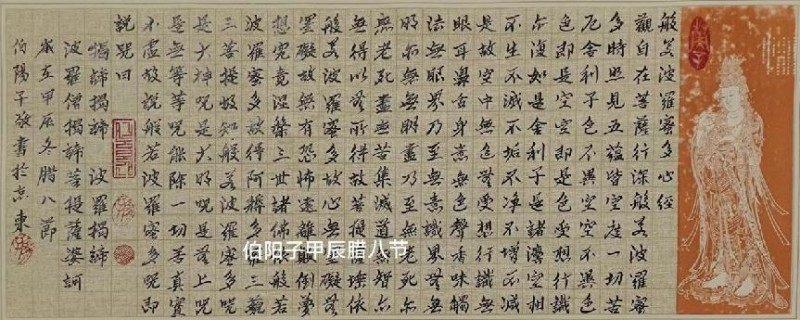 般若波羅蜜多心經
觀自在菩薩行深般若波羅蜜
多時照見五蘊皆空度一切苦
厄舍利子色不異空空不異色
色即是空空即是色受想行識
亦復如是舍利子是諸法空相
不生不滅不垢不淨不增不減
是故空中無色無受想行識無
眼耳鼻舌身意無色聲香味觸
法無眼界乃至無意識界無無
明亦無無明盡乃至無老死亦
無老死盡無苦集滅道無智亦
無得以無所得故菩提薩埵依
般若波羅蜜多故心無罣礙無
罣礙故無有恐怖遠離顛倒夢
想究竟涅槃三世諸佛依般若
波羅蜜多故得阿耨多羅三藐
三菩提故知般若波羅蜜多呪
是大神呪是大明呪是無上呪
是無等等呪能除一切苦真實
不虛故說般若波羅蜜多呪即
說呪曰
揭諦揭諦 波羅揭諦
波羅僧揭諦 菩提薩婆訶
歲在甲辰冬臘八節
伯陽子敬書於京東
伯阳子甲辰腊八节